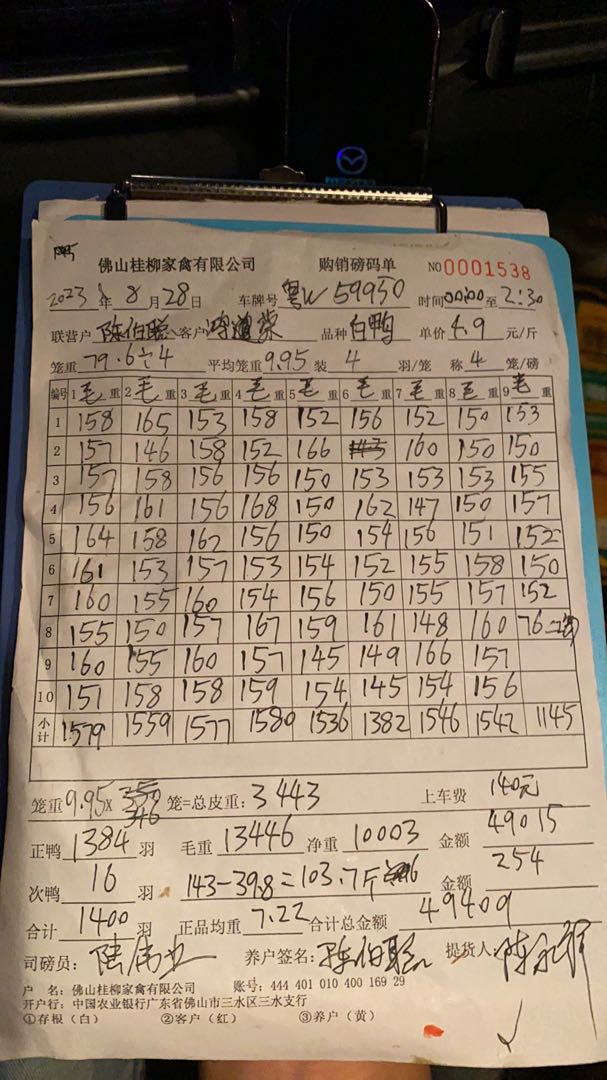 佛山桂柳家禽有限公司 购销磅码单 NO 0001538
2023 年 8 月 28 日 车牌号 粤W 59950 时间 00:00 至 2:30
联营户 陈伯聪 客户 品种 白鸭 单价 4.9 元/斤
笼重 79.6÷4 平均笼重 9.95 装 4 羽/笼 称 4 笼/磅
编号 1 毛 重 2 毛 重 3 毛 重 4 毛 重 5 毛 重 6 毛 重 7 毛 重 8 毛 重 9 毛 重
1 158 165 153 158 152 156 152 150 153
2 157 146 158 152 166 143 160 150 150
3 157 158 156 156 150 153 153 153 155
4 156 161 156 168 150 162 147 150 157
5 164 158 162 156 150 154 156 151 152
6 161 153 157 153 154 152 155 158 150
7 160 155 160 154 156 150 155 157 152
8 155 150 157 167 159 161 148 160 76
9 160 155 160 157 145 149 166 157
10 151 158 158 159 154 145 154 156
小计 1579 1559 1577 1580 1536 1382 1546 1542 1145
笼重 9.95 × 350 346 笼=总皮重: 3443 上车费 140元
正鸭 1384 羽 毛重 13446 净重 10003 金额 49015
次鸭 16 羽 143-39.8=103.7斤 金额 254
合计 1400 羽 正品均重 7.22 合计总金额 49409
司磅员: 养户签名: 陈伯聪 提货人:
户 名: 佛山桂柳家禽有限公司 账号: 444 401 010 400 169 29
开户行: 中国农业银行广东省佛山市三水区三水支行
①存根（白） ②客户（红） ③养户（黄）